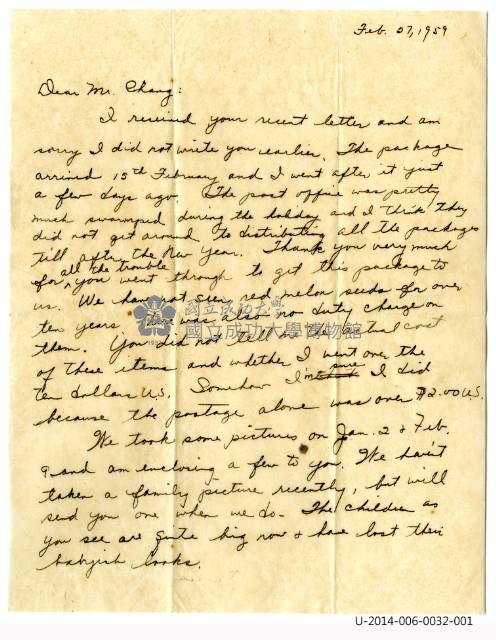 Feb. 07, 1959
Dear Mr. Chang:
I received your recent letter and am
sorry I did not write you earlier. The package
arrived 15th February and I went after it just
a few days ago. The post office was pretty
much swamped during the holiday and I think they
did not get around to distributing all the packages
till after the New Year. Thank you very much
for all the trouble you went through to get this package to
us. We have not seen red melon seeds for over
ten years. There was also no duty charge on
them. You did not tell me the actual cost
of these items and whether I went over the
ten dollars U.S. Somehow I'm sure I did
because the postage alone was over $2.00 U.S.
We took some pictures on Jan. 2 & Feb.
9 and am enclosing a few to you. We haven't
taken a family picture recently, but will
send you one when we do. The children as
you see are quite big now & have lost their
babyish looks.
國立成功大學
國立成功大學博物館
U-2014-006-0032-001